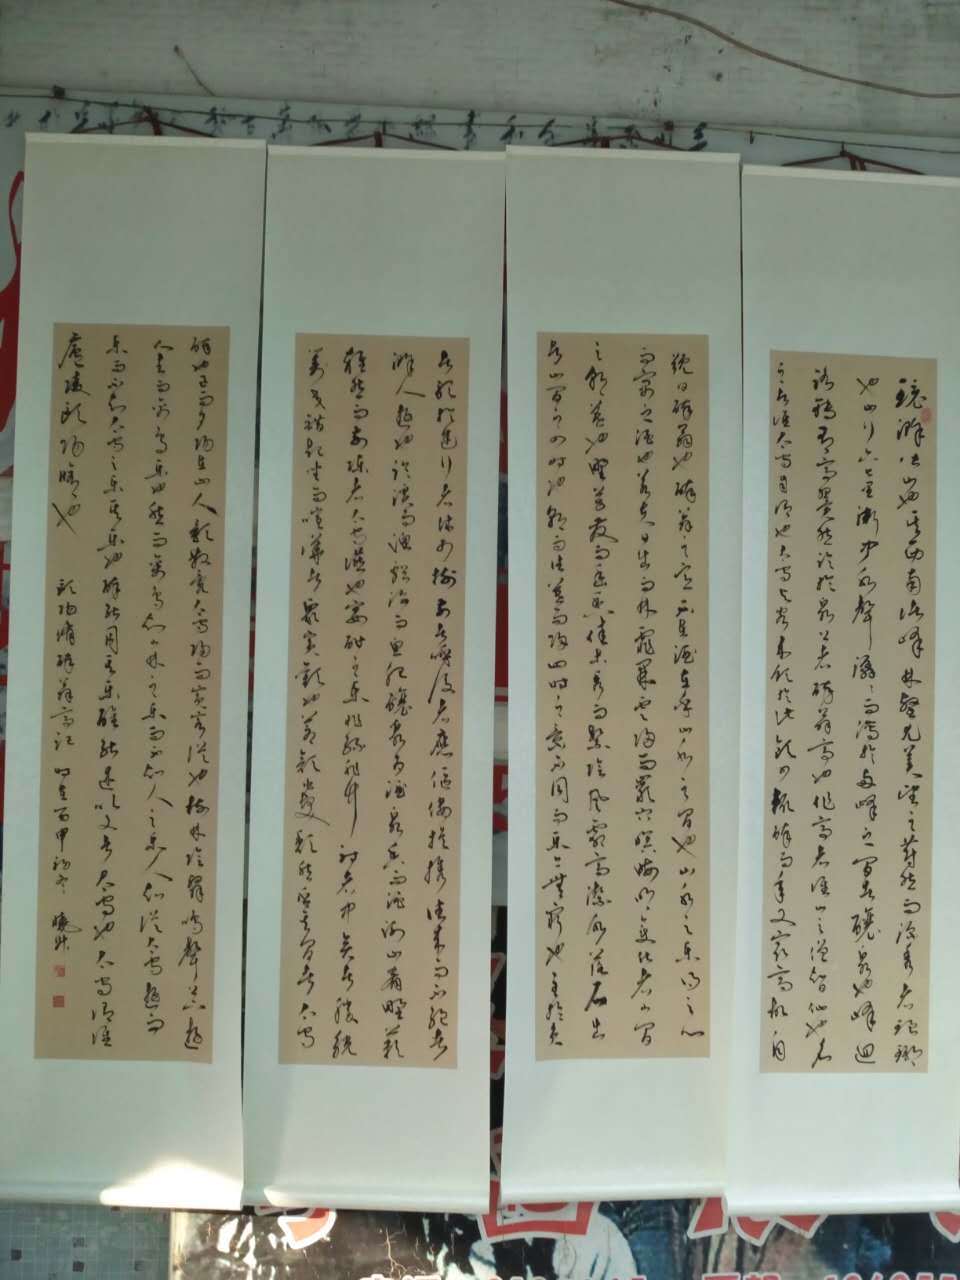 環滁皆山也其西南諸峰林壑尤美望之蔚然而深秀者琅琊
也山行六七里漸聞水聲潺潺而瀉於兩峰之間者釀泉也峰迴
路轉有亭翼然臨於泉上者醉翁亭也作亭者誰山之僧智仙也名
之者誰太守自謂也太守與客來飲於此飲少輒醉而年又最高故自
號曰醉翁也醉翁之意不在酒在乎山水之間也山水之樂得之心
而寓之酒也若夫日出而林霏開雲歸而巖穴暝晦明變化者山間
之朝暮也野芳發而幽香佳木秀而繁陰風霜高潔水落石出
者山間之四時也朝而往暮而歸四時之景不同而樂亦無窮也至於負
者歌於途行者休於樹前者呼後者應傴僂提攜往來而不絕者
滁人遊也臨溪而漁溪深而魚肥釀泉為酒泉香而酒洌山肴野蔌
雜然而前陳者太守宴也宴酣之樂非絲非竹射者中奕者勝觥
籌交錯起坐而喧嘩者眾賓歡也蒼顏白髮頹然乎其間者太守
醉也已而夕陽在山人影散亂太守歸而賓客從也樹林陰翳鳴聲上下遊
人去而禽鳥樂也然而禽鳥知山林之樂而不知人之樂人知從太守遊而
樂而不知太守之樂其樂也醉能同其樂醒能述以文者太守也太守謂誰
廬陵歐陽修也 歐陽修醉翁亭記 時在丙申初冬